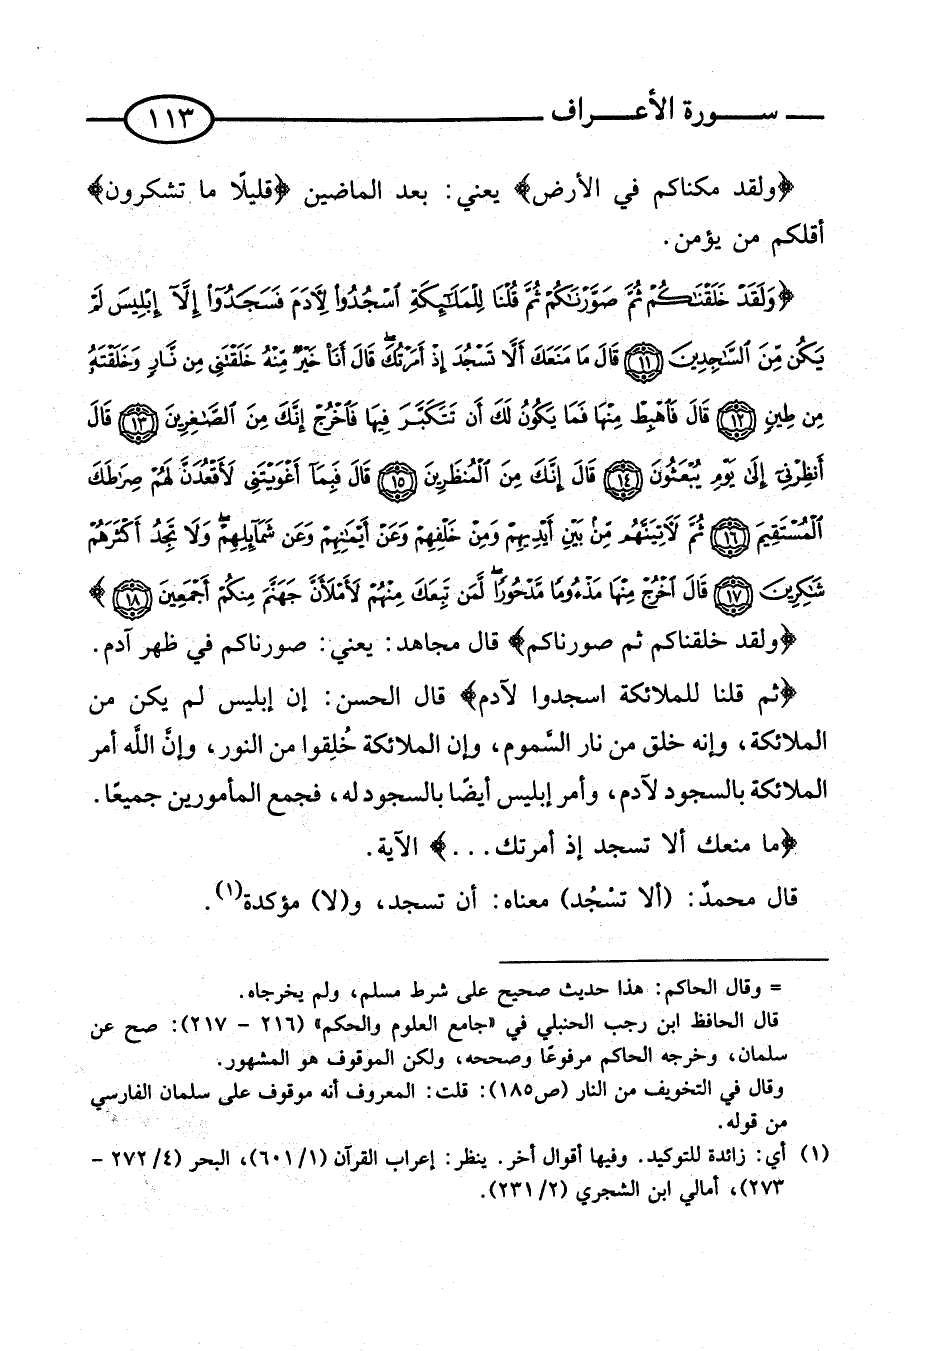 سـورة الأعـراف ١١٣
﴿ولقد مكناكم في الأرض﴾ يعني: بعد الماضين ﴿قليلًا ما تشكرون﴾
أقلكم من يؤمن.
﴿وَلَقَدْ خَلَقْنَٰكُمْ ثُمَّ صَوَّرْنَٰكُمْ ثُمَّ قُلْنَا لِلْمَلَٰٓئِكَةِ ٱسْجُدُوا۟ لِءَادَمَ فَسَجَدُوٓا۟ إِلَّآ إِبْلِيسَ لَمْ
يَكُن مِّنَ ٱلسَّٰجِدِينَ ١١ قَالَ مَا مَنَعَكَ أَلَّا تَسْجُدَ إِذْ أَمَرْتُكَ ۖ قَالَ أَنَا۠ خَيْرٌ مِّنْهُ خَلَقْتَنِي مِن نَّارٍ وَخَلَقْتَهُۥ
مِن طِينٍ ١٢ قَالَ فَٱهْبِطْ مِنْهَا فَمَا يَكُونُ لَكَ أَن تَتَكَبَّرَ فِيهَا فَٱخْرُجْ إِنَّكَ مِنَ ٱلصَّٰغِرِينَ ١٣ قَالَ
أَنظِرْنِيٓ إِلَىٰ يَوْمِ يُبْعَثُونَ ١٤ قَالَ إِنَّكَ مِنَ ٱلْمُنظَرِينَ ١٥ قَالَ فَبِمَآ أَغْوَيْتَنِي لَأَقْعُدَنَّ لَهُمْ صِرَٰطَكَ
ٱلْمُسْتَقِيمَ ١٦ ثُمَّ لَءَاتِيَنَّهُم مِّنۢ بَيْنِ أَيْدِيهِمْ وَمِنْ خَلْفِهِمْ وَعَنْ أَيْمَٰنِهِمْ وَعَن شَمَآئِلِهِمْ ۖ وَلَا تَجِدُ أَكْثَرَهُمْ
شَٰكِرِينَ ١٧ قَالَ ٱخْرُجْ مِنْهَا مَذْءُومًا مَّدْحُورًا ۖ لَّمَن تَبِعَكَ مِنْهُمْ لَأَمْلَأَنَّ جَهَنَّمَ مِنكُمْ أَجْمَعِينَ ١٨﴾
﴿ولقد خلقناكم ثم صورناكم﴾ قال مجاهد: يعني: صورناكم في ظهر آدم.
﴿ثم قلنا للملائكة اسجدوا لآدم﴾ قال الحسن: إن إبليس لم يكن من
الملائكة، وإنه خلق من نار السَّموم، وإن الملائكة خُلِقوا من النور، وإنَّ اللَّه أمر
الملائكة بالسجود لآدم، وأمر إبليس أيضًا بالسجود له، فجمع المأمورين جميعًا.
﴿ما منعك ألا تسجد إذ أمرتك...﴾ الآية.
قال محمدٌ: (ألا تسْجُد) معناه: أن تسجد، و(لا) مؤكدة(١).
= وقال الحاكم: هذا حديث صحيح على شرط مسلم، ولم يخرجاه.
قال الحافظ ابن رجب الحنبلي في «جامع العلوم والحكم» (٢١٦ - ٢١٧): صح عن
سلمان، وخرجه الحاكم مرفوعًا وصححه، ولكن الموقوف هو المشهور.
وقال في التخويف من النار (ص١٨٥): قلت: المعروف أنه موقوف على سلمان الفارسي
من قوله.
(١) أي: زائدة للتوكيد. وفيها أقوال أخر. ينظر: إعراب القرآن (١/ ٦٠١)، البحر (٤/ ٢٧٢ -
٢٧٣)، أمالي ابن الشجري (٢/ ٢٣١).